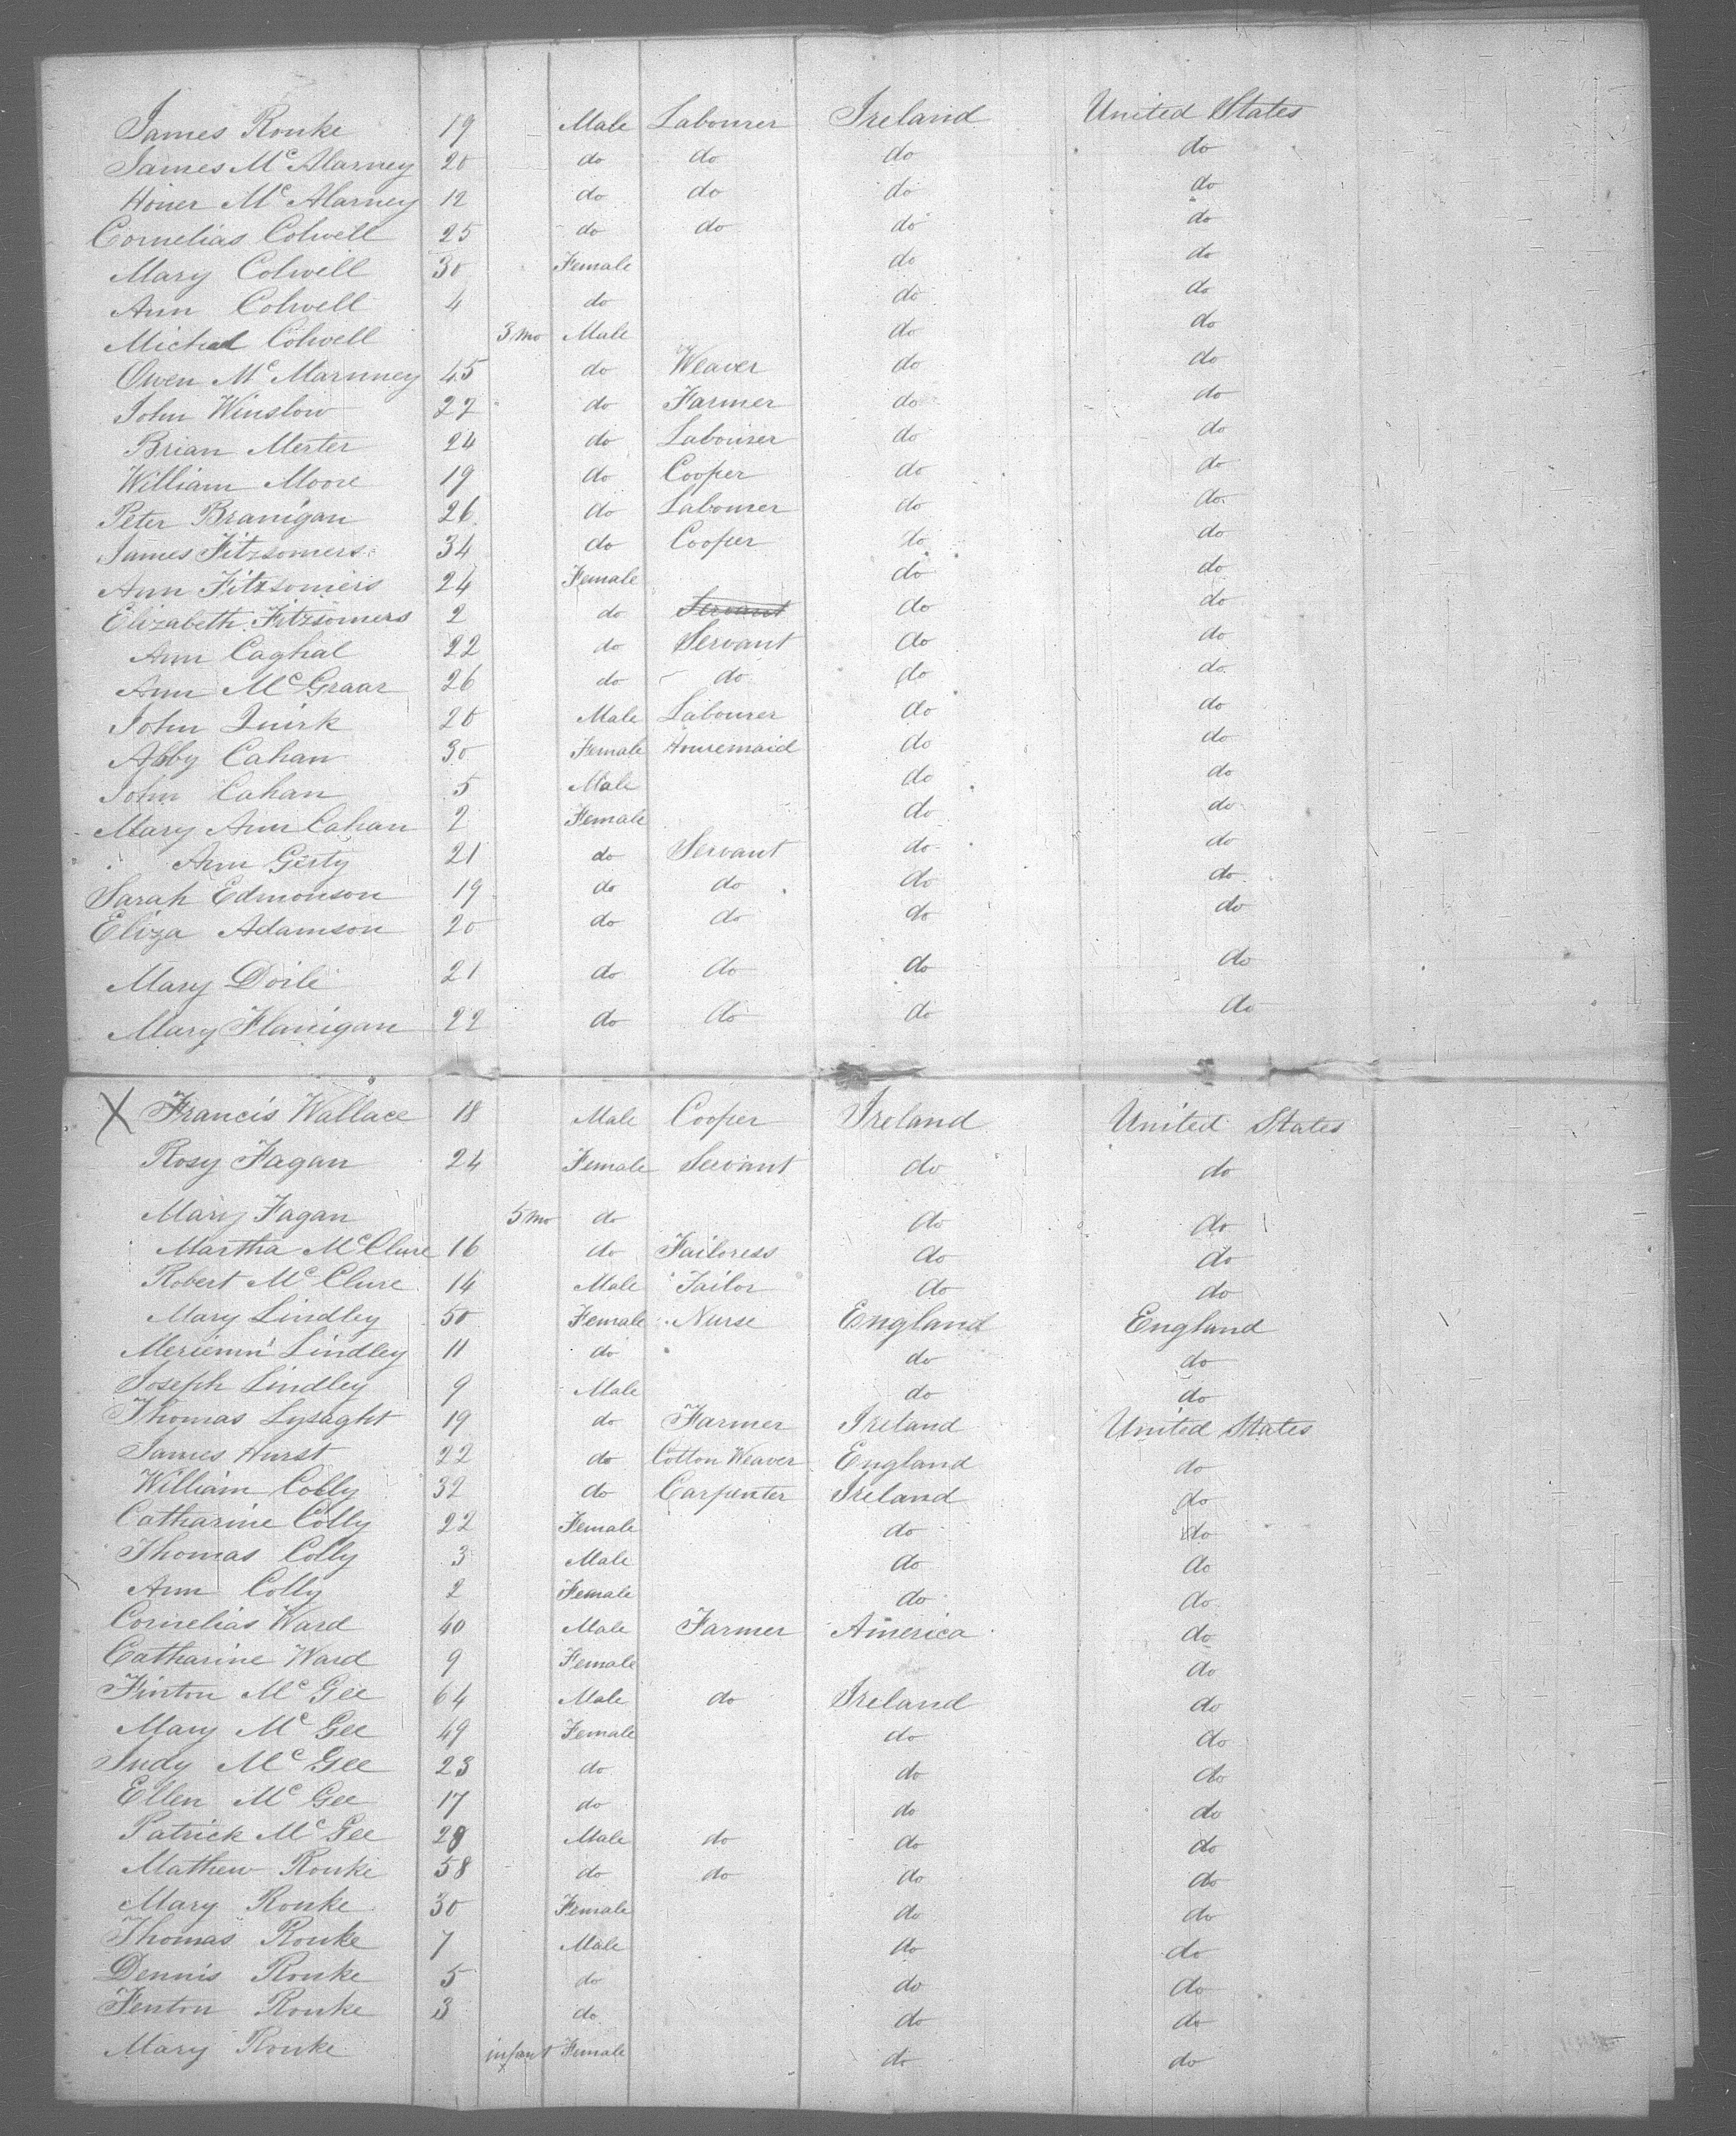 James Rouke 19 Male Labourer Ireland United States
James Mc Alarney 20 do do do do
Honer Mc Alarney 12 do do do do
Cornelias Colwell 25 do do do do
Mary Colwell 30 Female do do
Ann Colwell 4 do do do
Michal Colwell 3 mo Male do do
Owen Mc Marnney 45 do Weaver do do
John Winslow 27 do Farmer do do
Brian Merter 24 do Labourer do do
William Moore 19 do Cooper do do
Peter Branigan 26 do Labourer do do
James Fitzsomers 34 do Cooper do do
Ann Fitzsomers 24 Female do do
Elizabeth Fitzsomers 2 do Servant do do
Ann Caghal 22 do Servant do do
Ann Mc Graar 26 do do do do
John Quirk 20 Male Labourer do do
Abby Cahan 30 Female Housemaid do do
John Cahan 5 Male do do
Mary Ann Cahan 2 Female do do
Ann Gerty 21 do Servant do do
Sarah Edmonson 19 do do do do
Eliza Adamson 20 do do do do
Mary Doile 21 do do do do
Mary Flanigan 22 do do do do
X Francis Wallace 18 Male Cooper Ireland United States
Rosy Fagan 24 Female Servant do do
Mary Fagan 5 mo do do do
Martha Mc Clure 16 do Tailoress do do
Robert Mc Clure 14 Male Tailor do do
Mary Lindley 50 Female Nurse England England
Meriemn Lindley 11 do do do
Joseph Lindley 9 Male do do
Thomas Lysaght 19 do Farmer Ireland United States
James Hurst 22 do Cotton Weaver England do
William Colly 32 do Carpenter Ireland do
Catharine Colly 22 Female do do
Thomas Colly 3 Male do do
Ann Colly 2 Female do do
Cornelias Ward 40 Male Farmer America do
Catharine Ward 9 Female do do
Finton Mc Gee 64 Male do Ireland do
Mary Mc Gee 49 Female do do
Judy Mc Gee 23 do do do
Ellen Mc Gee 17 do do do
Patrick Mc Gee 28 Male do do do
Mathew Rouke 58 do do do do
Mary Rouke 30 Female do do
Thomas Rouke 7 Male do do
Dennis Rouke 5 do do do
Fenton Rouke 3 do do do
Mary Rouke infant Female do do